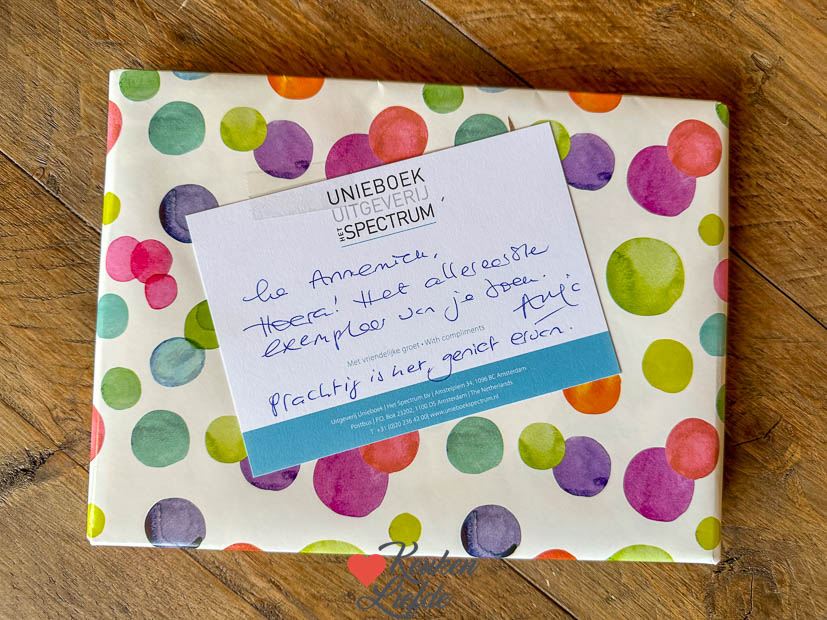 UNIEBOEK
UITGEVERIJ
HET SPECTRUM
Annemiek,
Hoera! Het allereerste
exemplaar van je boek.
Met vriendelijke groet • With compliments
Prachtig is het, geniet ervan.
Uitgeverij Unieboek | Het Spectrum bv | Amstelplein 34, 1096 BC Amsterdam
Postbus | P.O. Box 23202, 1100 DS Amsterdam | The Netherlands
T +31 (0)20 236 42 00| www.unieboekspectrum.nl
Keuken
Liefde